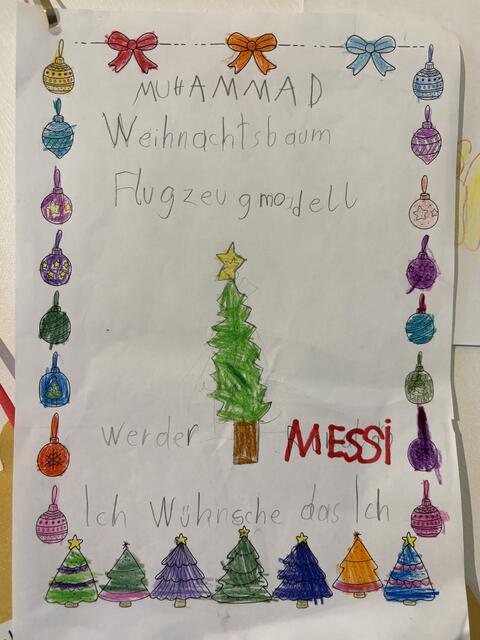 MUHAMMAD
Weihnachtsbaum
Flugzeugmodell
werder MESSI
Ich Wühnsche das Ich